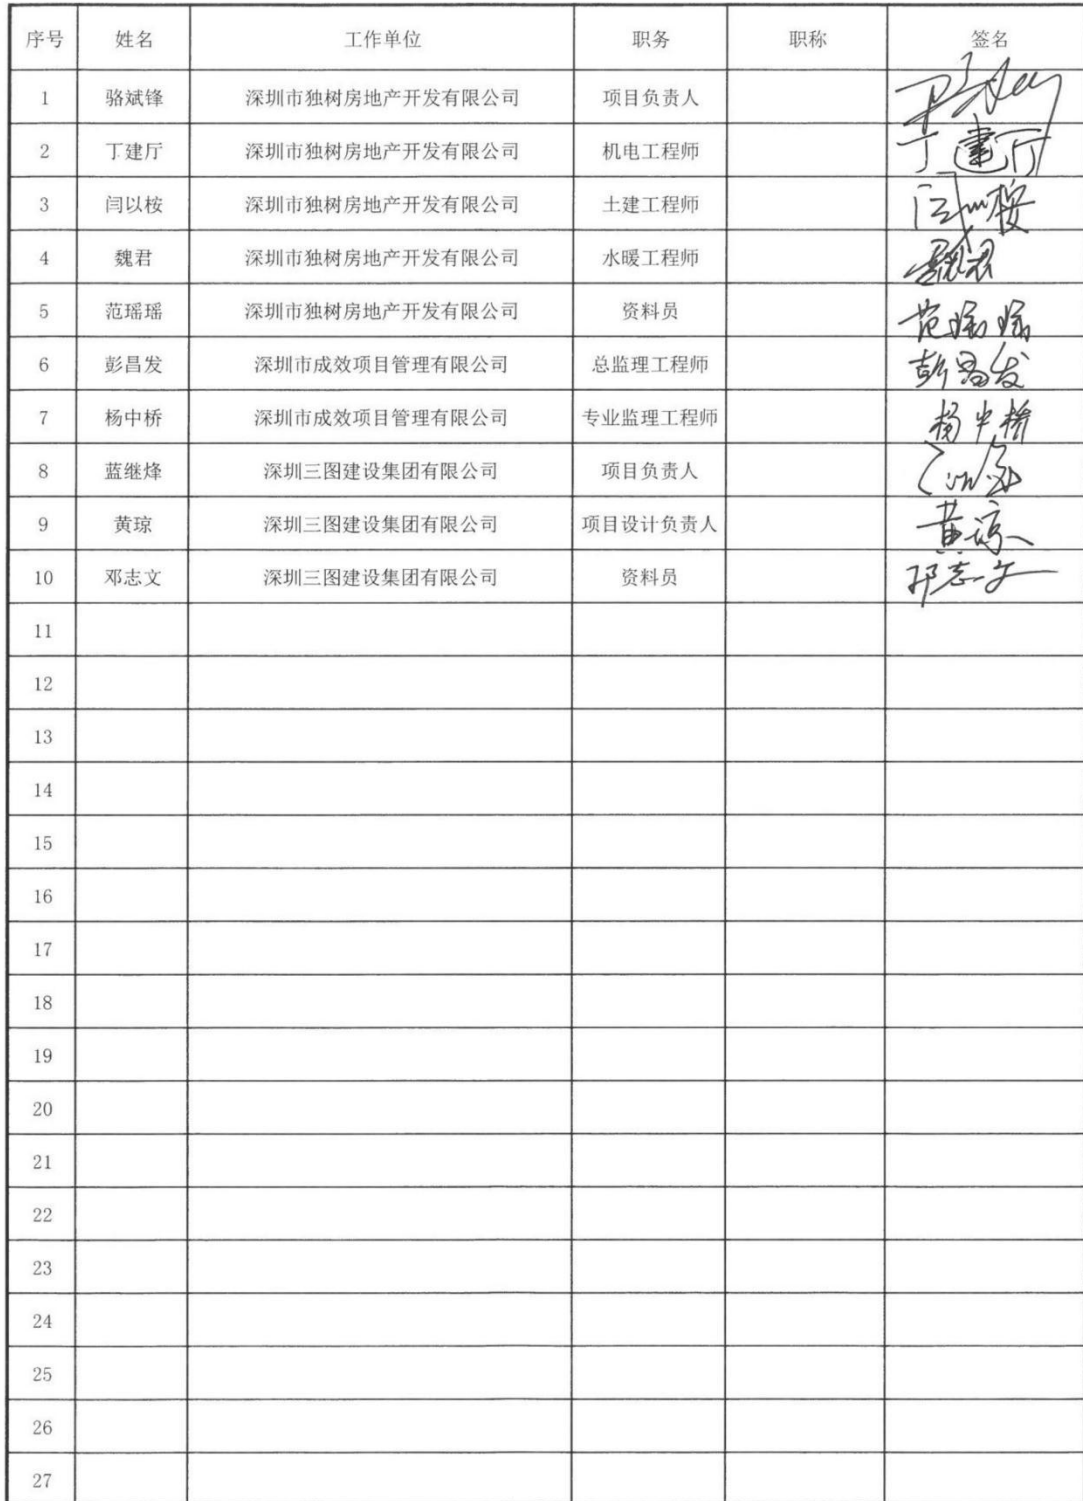 序号 姓名 工作单位 职务 职称 签名
1 骆斌锋 深圳市独树房地产开发有限公司 项目负责人
2 丁建厅 深圳市独树房地产开发有限公司 机电工程师 丁建厅
3 闫以桉 深圳市独树房地产开发有限公司 土建工程师 闫以桉
4 魏君 深圳市独树房地产开发有限公司 水暖工程师 魏君
5 范瑶瑶 深圳市独树房地产开发有限公司 资料员 范瑶瑶
6 彭昌发 深圳市成效项目管理有限公司 总监理工程师 彭昌发
7 杨中桥 深圳市成效项目管理有限公司 专业监理工程师 杨中桥
8 蓝继烽 深圳三图建设集团有限公司 项目负责人
9 黄琼 深圳三图建设集团有限公司 项目设计负责人 黄琼
10 邓志文 深圳三图建设集团有限公司 资料员 邓志文
11
12
13
14
15
16
17
18
19
20
21
22
23
24
25
26
27